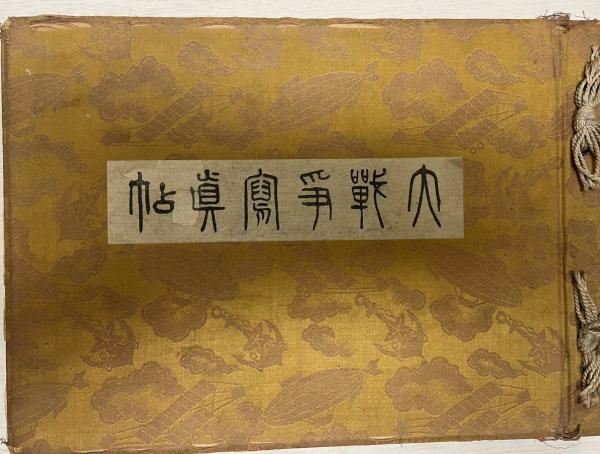 大戰爭寫眞帖